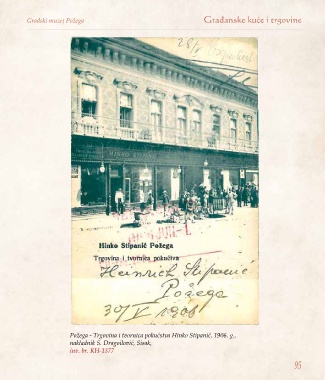 Gradski muzej Požega
Građanske kuće i trgovine
HINKO STIPANIĆ
Hinko Stipanić Požega
Trgovina i tvornica pokućtva
Heinrich Stipanić
Požega
30/V 1906
Požega - Trgovina i tvornica pokućstva Hinko Stipanić, 1906. g.,
nakladnik S. Dragoilović, Sisak,
inv. br. KH-1377
95